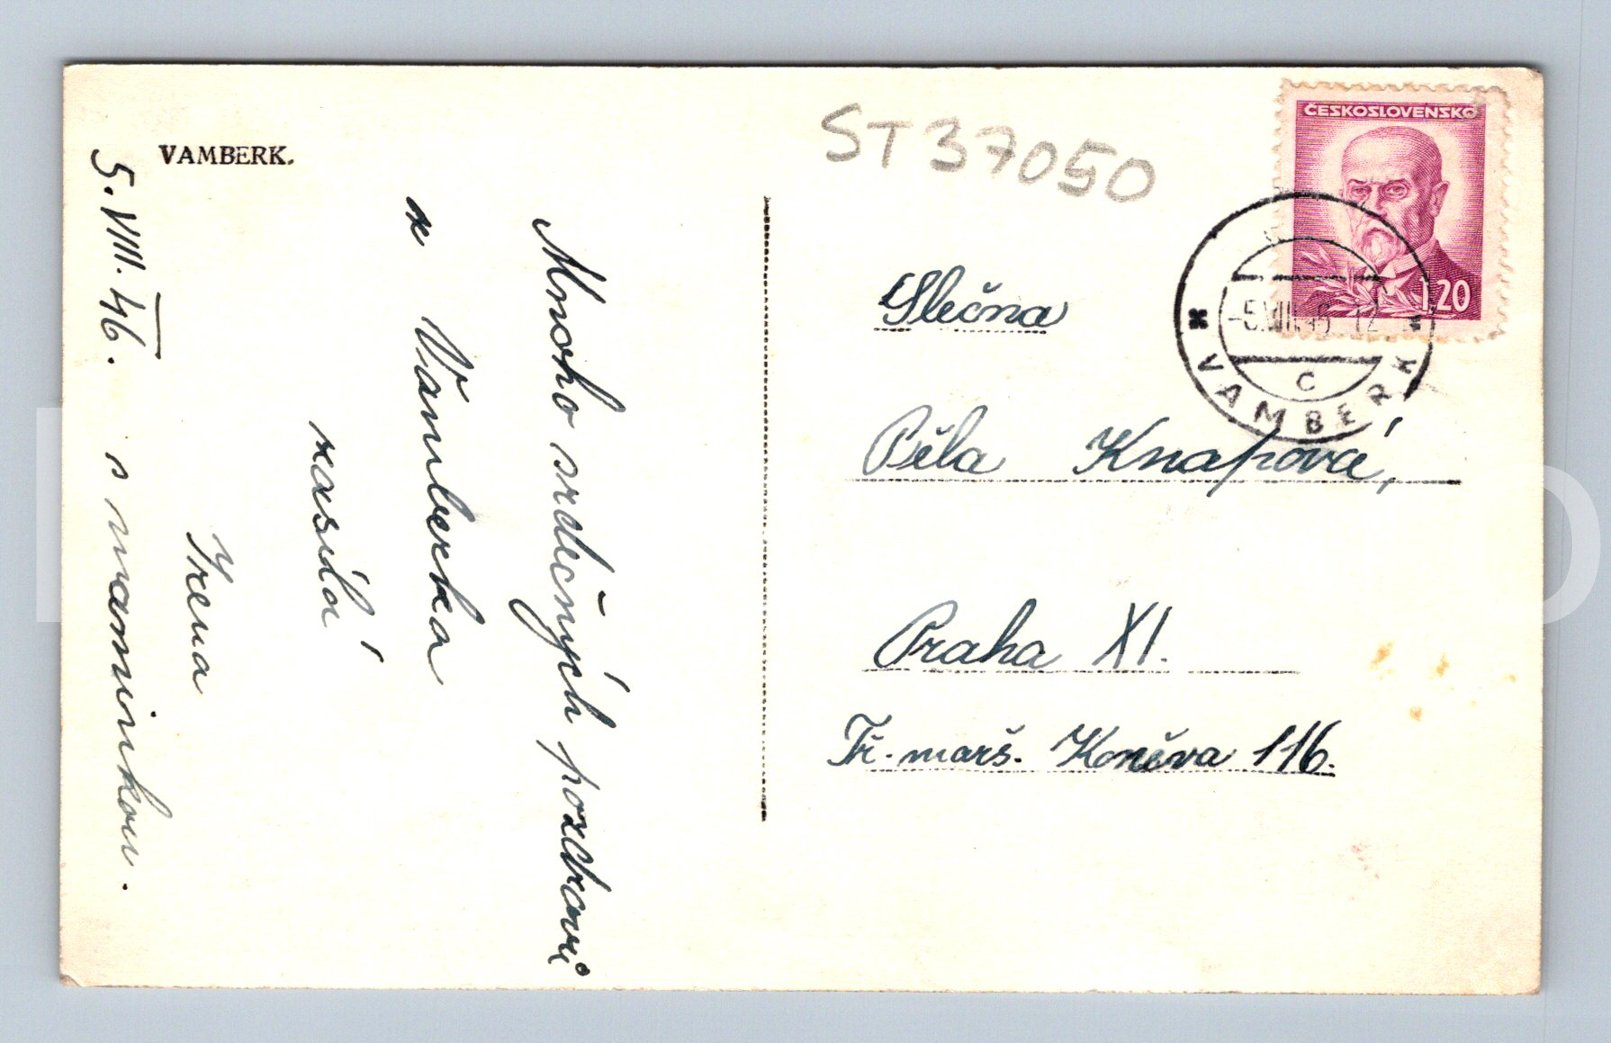 VAMBERK.
Mnoho srdečných pozdravů
z Vamberka
zasílá
Irena
s maminkou.
5. VIII. 46.
ST 37050
ČESKOSLOVENSKO
1.20
-5.VIII.46 12
C
VAMBERK
Slečna
Běla Knapová,
Praha XI.
Tř. marš. Koněva 116.